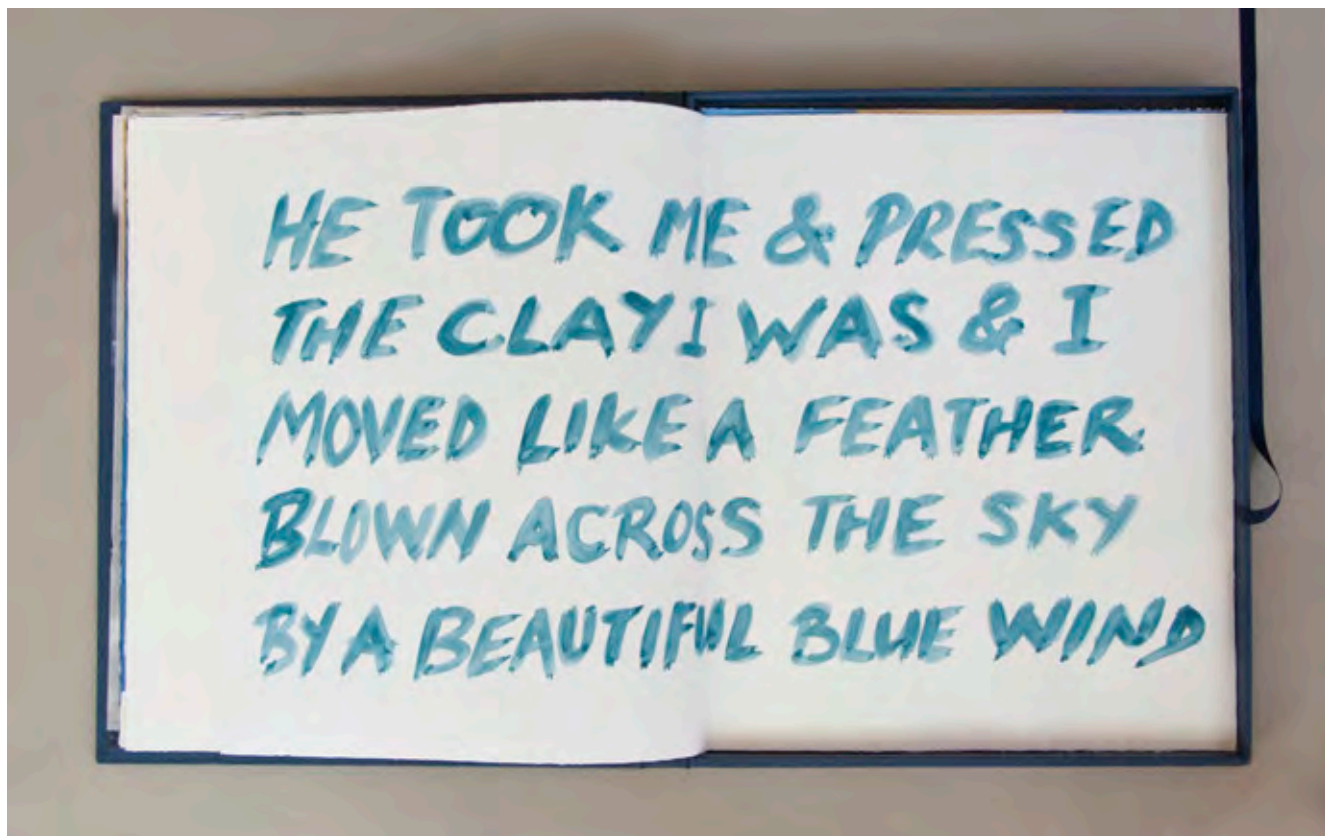 HE TOOK ME & PRESSED
THE CLAY I WAS & I
MOVED LIKE A FEATHER
BLOWN ACROSS THE SKY
BY A BEAUTIFUL BLUE WIND